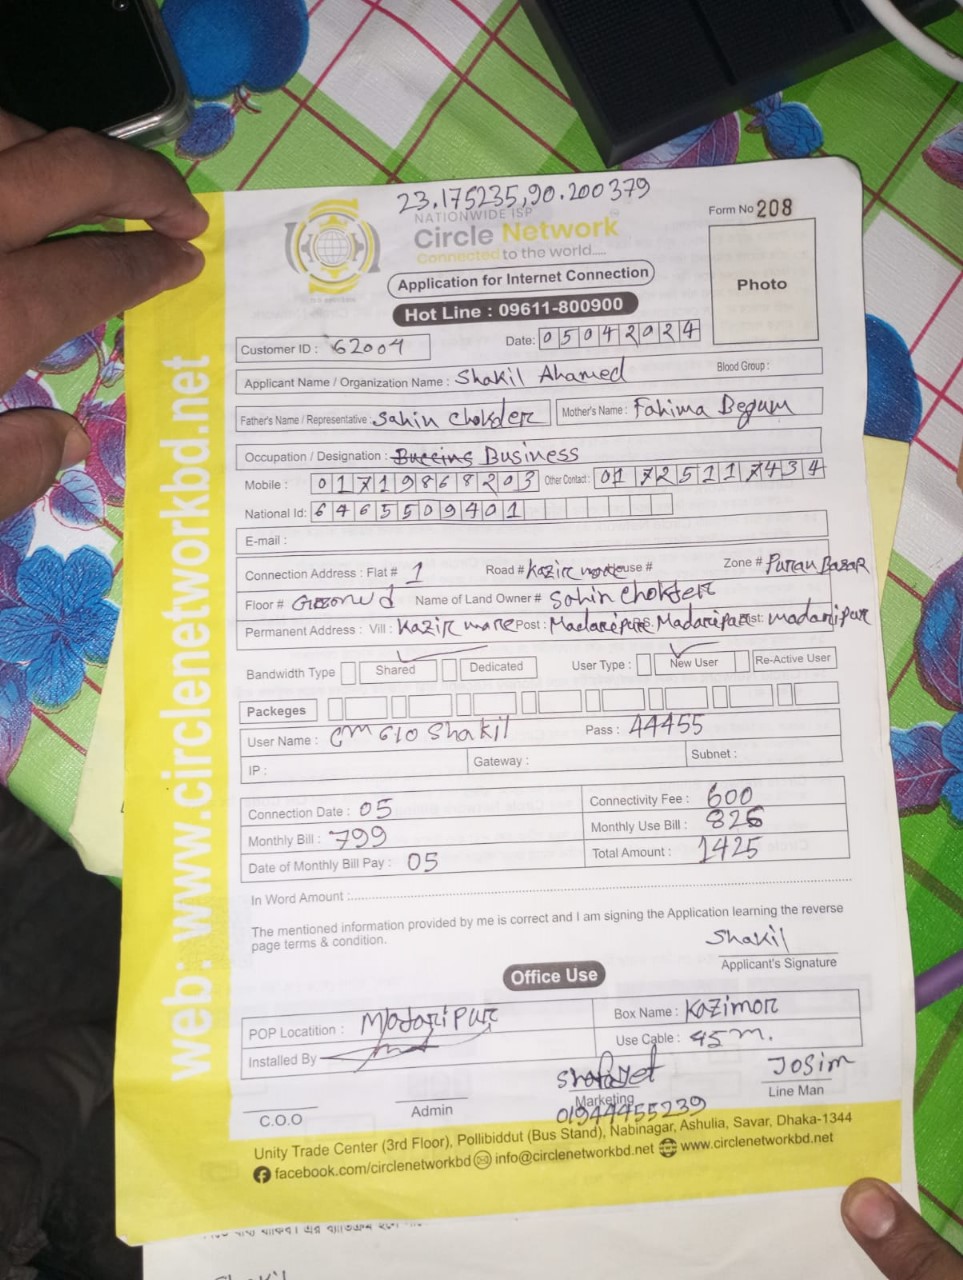 23.175235,90.200379
NATIONWIDE ISP
Circle Network
Connected to the world....
Form No 208
Photo
Application for Internet Connection
Hot Line : 09611-800900
Customer ID : 62004
Date: 05042024
Applicant Name / Organization Name : Shakil Ahamed Blood Group :
Father's Name / Representative : Sahin Chokder Mother's Name : Fahima Begum
Occupation / Designation : Business
Mobile : 01719868203 Other Contact : 01725117434
National Id: 6465509401
E-mail :
Connection Address : Flat # 1 Road # Kazir more House # Zone # Puran Bazar
Floor # Name of Land Owner # Sahin Chokder
Permanent Address : Vill : Kazir more Post : Madaripur P.S. Madaripur Dist: madaripur
Bandwidth Type Shared Dedicated User Type : New User Re-Active User
Packeges
User Name : CM610Shakil Pass : 44455
IP : Gateway : Subnet :
Connection Date : 05 Connectivity Fee : 600
Monthly Bill : 799 Monthly Use Bill : 825
Date of Monthly Bill Pay : 05 Total Amount : 1425
In Word Amount :
The mentioned information provided by me is correct and I am signing the Application learning the reverse
page terms & condition.
Shakil
Applicant's Signature
Office Use
POP Locatition : Madaripur Box Name : Kazimor
Installed By Use Cable : 45 m.
Shafayet Josim
C.O.O Admin Marketing Line Man
01944455239
Unity Trade Center (3rd Floor), Pollibiddut (Bus Stand), Nabinagar, Ashulia, Savar, Dhaka-1344
facebook.com/circlenetworkbd info@circlenetworkbd.net www.circlenetworkbd.net
web: www.circlenetworkbd.net
Shakil